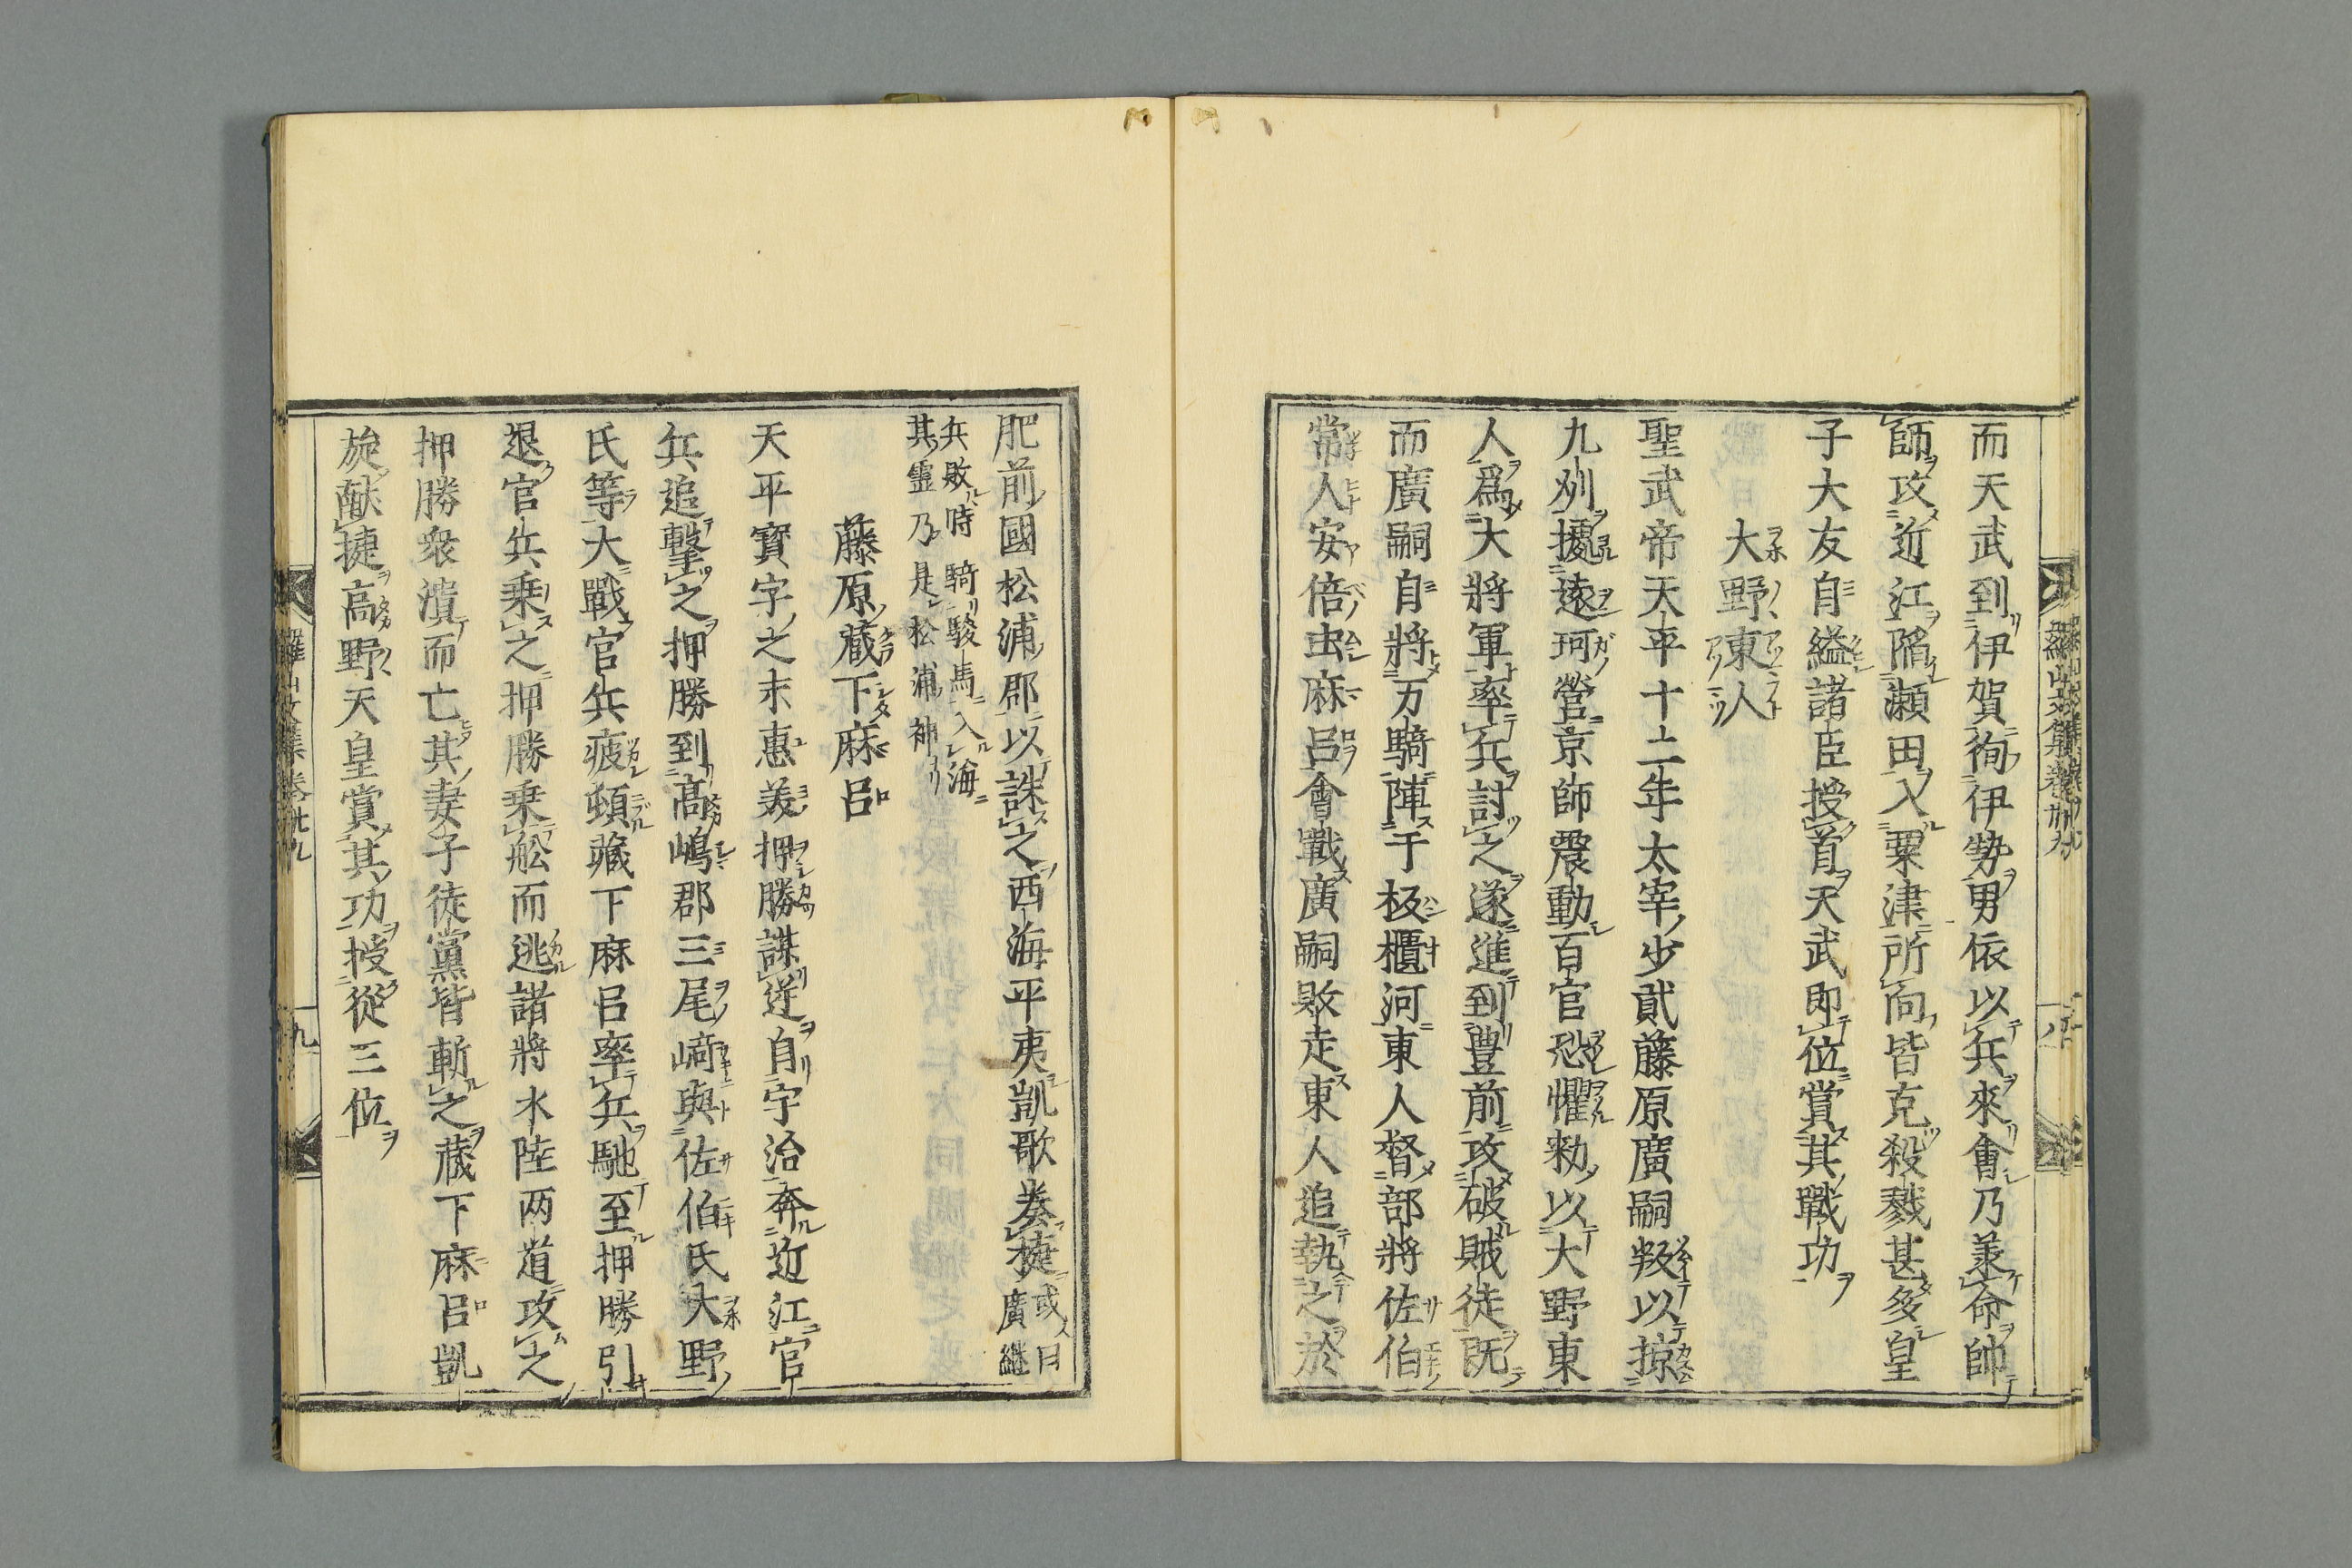 而天武到伊賀徇伊勢男依以兵來會乃羕命帥
師攻近江陷瀬田入粟津所向皆克殺戮甚多皇
子大友自縊諸臣授首天武即位賞其戰功
大野東人
聖武帝天平十二年太宰少貳藤原廣嗣叛以掠
九刕擾遠珂營京師震動百官恐懼勑以大野東
人爲大將軍率兵討之遂進到豊前攻破賊徒既
而廣嗣自將万騎陣于板櫃河東人督部將佐伯
常人安倍虫麻呂會戰廣嗣敗走東人追執之於
肥前國松浦郡以誅之西海平夷凱歌奏捷或曰廣継
兵敗時騎駿馬入海
其靈乃是松浦神
藤原藏下麻呂
天平寳字之末惠美押勝謀逆自宇治奔近江官
兵追擊之押勝到高嶋郡三尾﨑與佐伯氏大野
氏等大戰官兵疲頓藏下麻呂率兵馳至押勝引
退官兵乗之押勝乗舩而逃諸將水陸两道攻之
押勝衆潰而亡其妻子徒黨皆斬之藏下麻呂凱
旋献捷高野天皇賞其功授從三位
羅山文集卷卅九
九